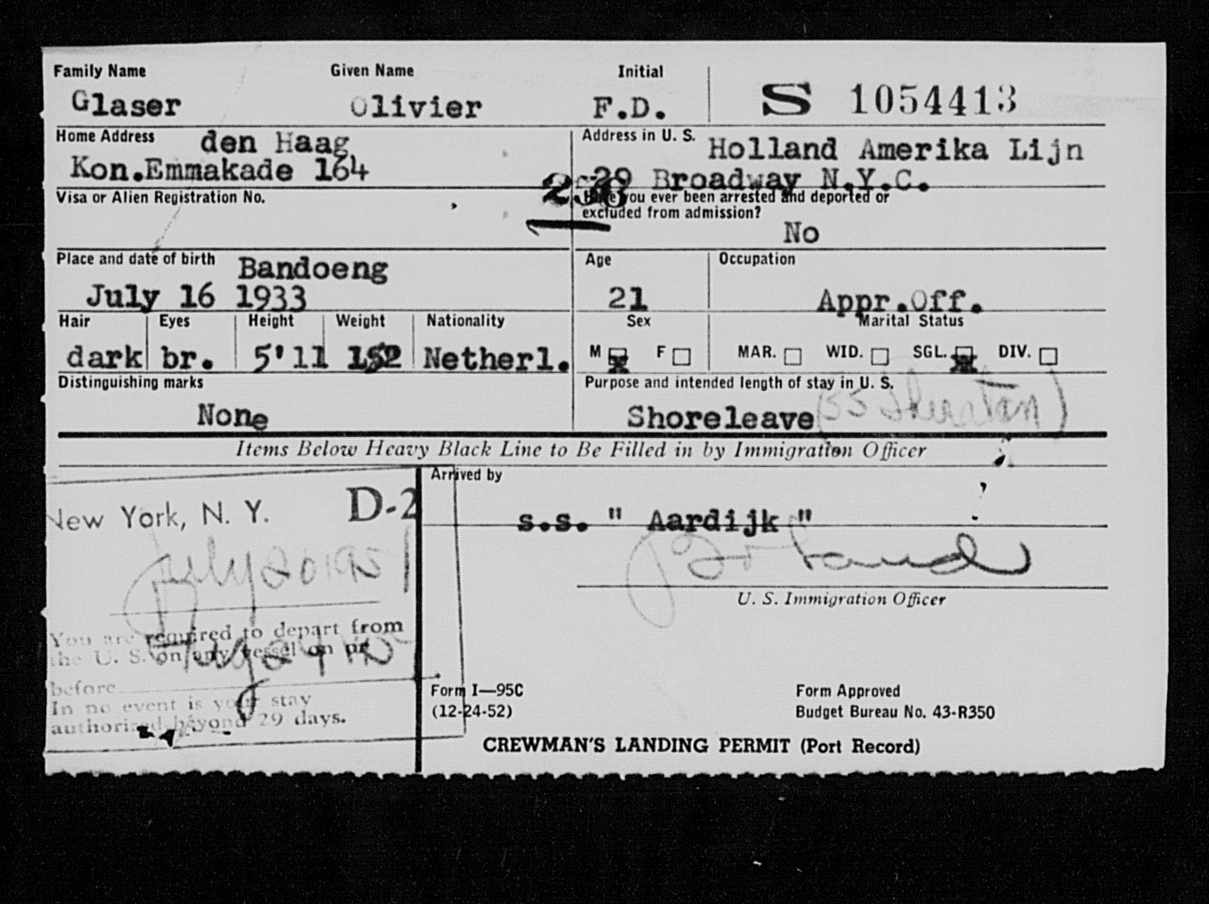 Family Name Given Name Initial
Glaser Olivier F.D. S 1054413
Home Address den Haag
Kon.Emmakade 164
Address in U. S. Holland Amerika Lijn
29 Broadway N.Y.C.
Visa or Alien Registration No.
Have you ever been arrested and deported or
excluded from admission?
No
Place and date of birth Bandoeng
July 16 1933
Age
21
Occupation
Appr.Off.
Hair Eyes Height Weight Nationality
dark br. 5'11 152 Netherl.
Sex
M F
Marital Status
MAR. WID. SGL. DIV.
Distinguishing marks
None
Purpose and intended length of stay in U. S.
Shoreleave
Items Below Heavy Black Line to Be Filled in by Immigration Officer
New York, N. Y. D-2
July 20 195
You are required to depart from
the U. S. on any vessel on or
before
In no event is your stay
authorized beyond 29 days.
Arrived by
s.s. " Aardijk "
U. S. Immigration Officer
Form I—95C
(12-24-52)
Form Approved
Budget Bureau No. 43-R350
CREWMAN'S LANDING PERMIT (Port Record)